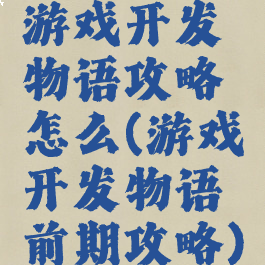 游戏开发
物语攻略
怎么(游戏
开发物语
前期攻略)